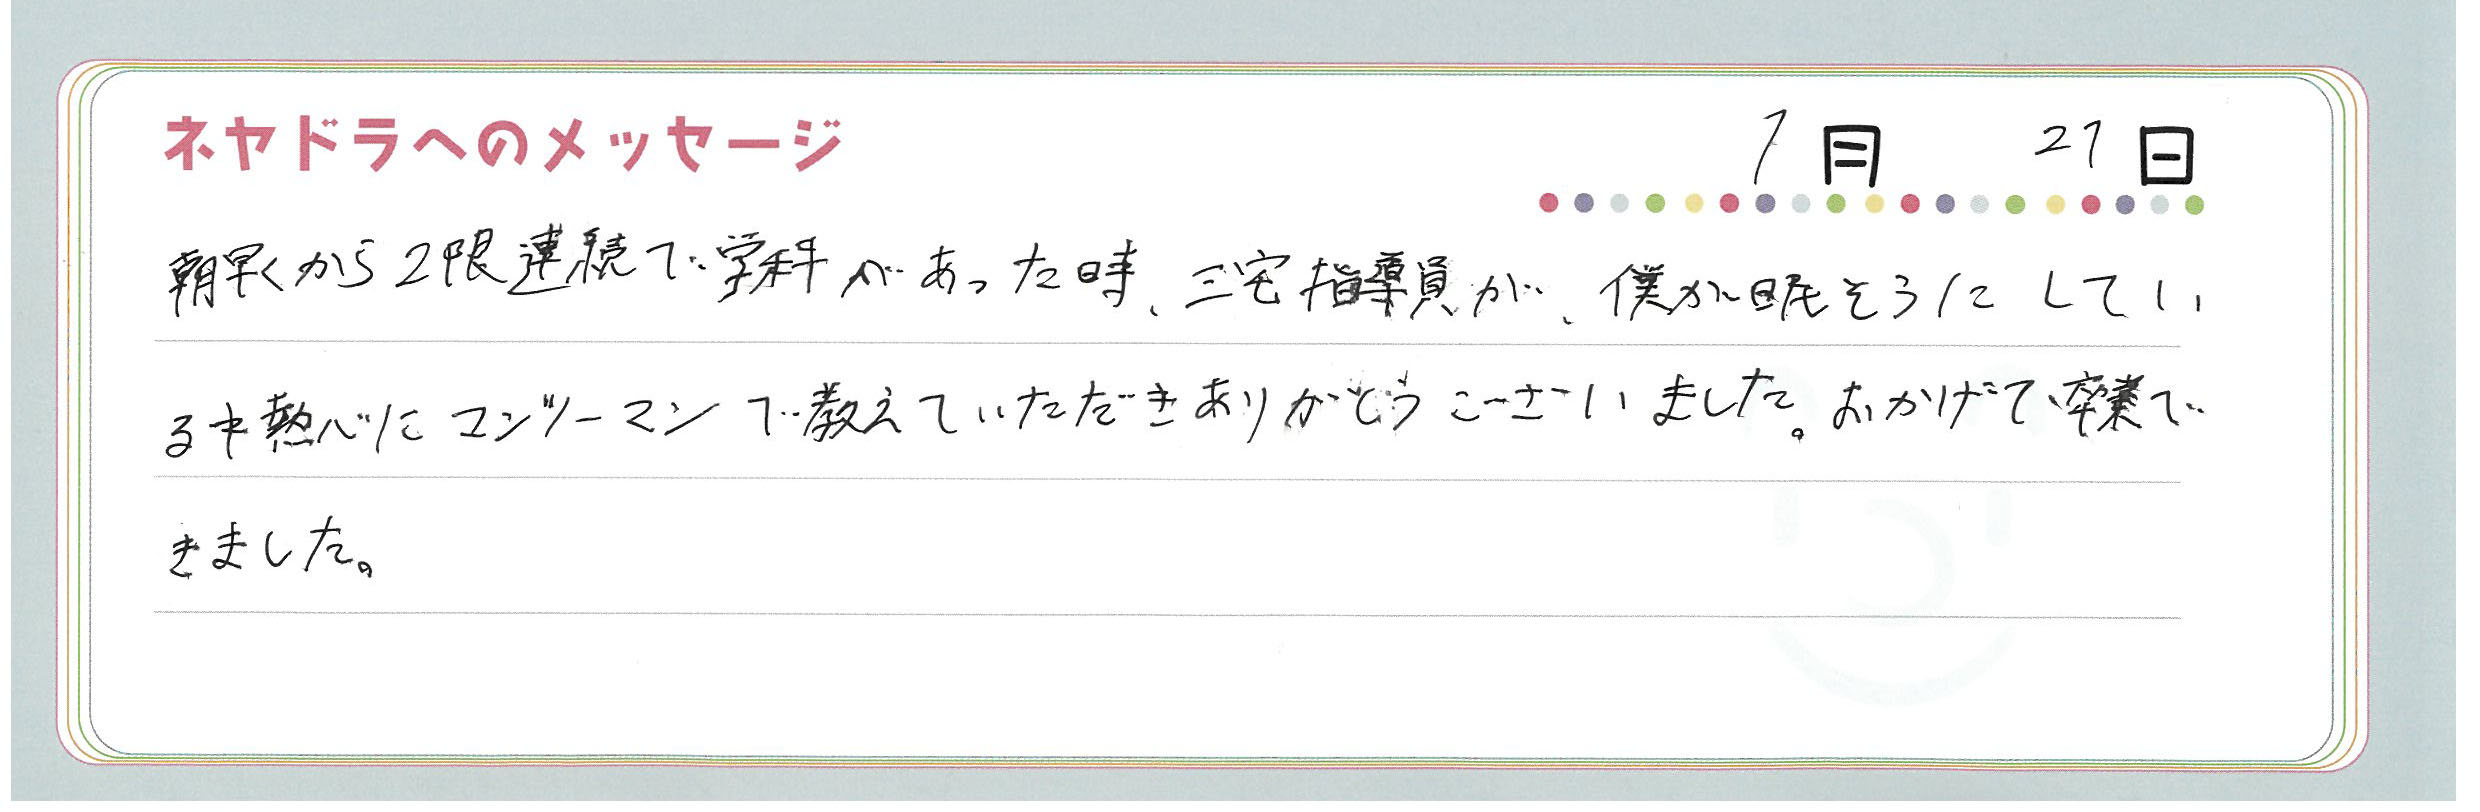 ネヤドラへのメッセージ
1月 21日
朝早くから2限連続で学科があった時、三宅指導員が、僕が眠そうにしてい
る中熱心にマンツーマンで教えていただきありがとうございました。おかげで卒業で
きました。